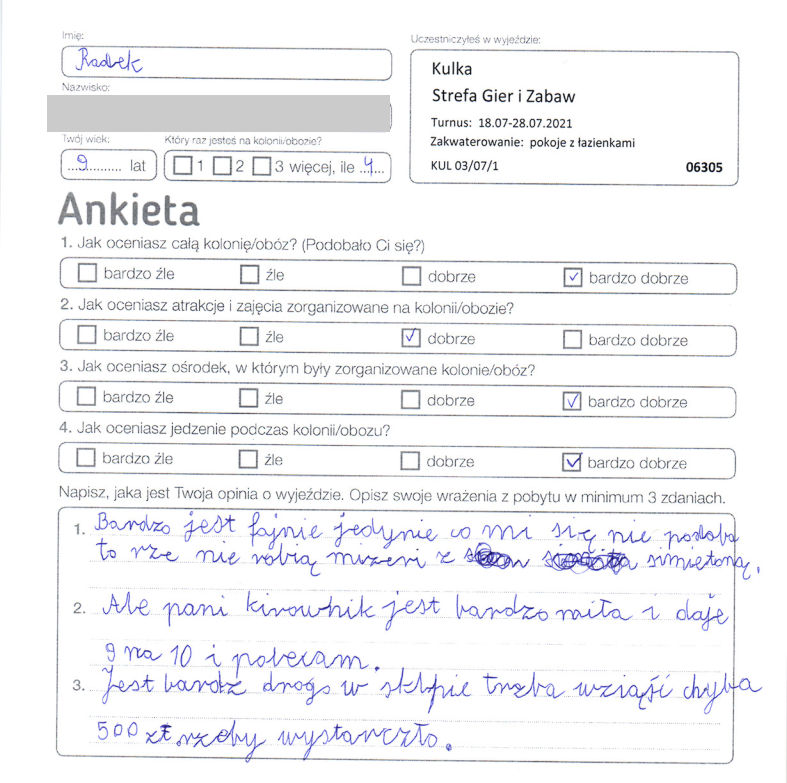 Imię:
Radek
Nazwisko:
Twój wiek:
...9......... lat
Który raz jesteś na kolonii/obozie?
1 2 3 więcej, ile ..4...
Uczestniczyłeś w wyjeździe:
Kulka
Strefa Gier i Zabaw
Turnus: 18.07-28.07.2021
Zakwaterowanie: pokoje z łazienkami
KUL 03/07/1 06305
Ankieta
1. Jak oceniasz całą kolonię/obóz? (Podobało Ci się?)
bardzo źle źle dobrze ✓ bardzo dobrze
2. Jak oceniasz atrakcje i zajęcia zorganizowane na kolonii/obozie?
bardzo źle źle ✓ dobrze bardzo dobrze
3. Jak oceniasz ośrodek, w którym były zorganizowane kolonie/obóz?
bardzo źle źle dobrze ✓ bardzo dobrze
4. Jak oceniasz jedzenie podczas kolonii/obozu?
bardzo źle źle dobrze ✓ bardzo dobrze
Napisz, jaka jest Twoja opinia o wyjeździe. Opisz swoje wrażenia z pobytu w minimum 3 zdaniach.
1. Bardzo jest fajnie jedynie co mi się nie podoba
to rze nie robią mizeri z smietoną.
2. Ale pani kirownik jest bardzo miła i daje
9 na 10 i polecam.
3. Jest bardz drogo w sklpie trzba wziąść chyba
500 zł rzeby wystarczło.